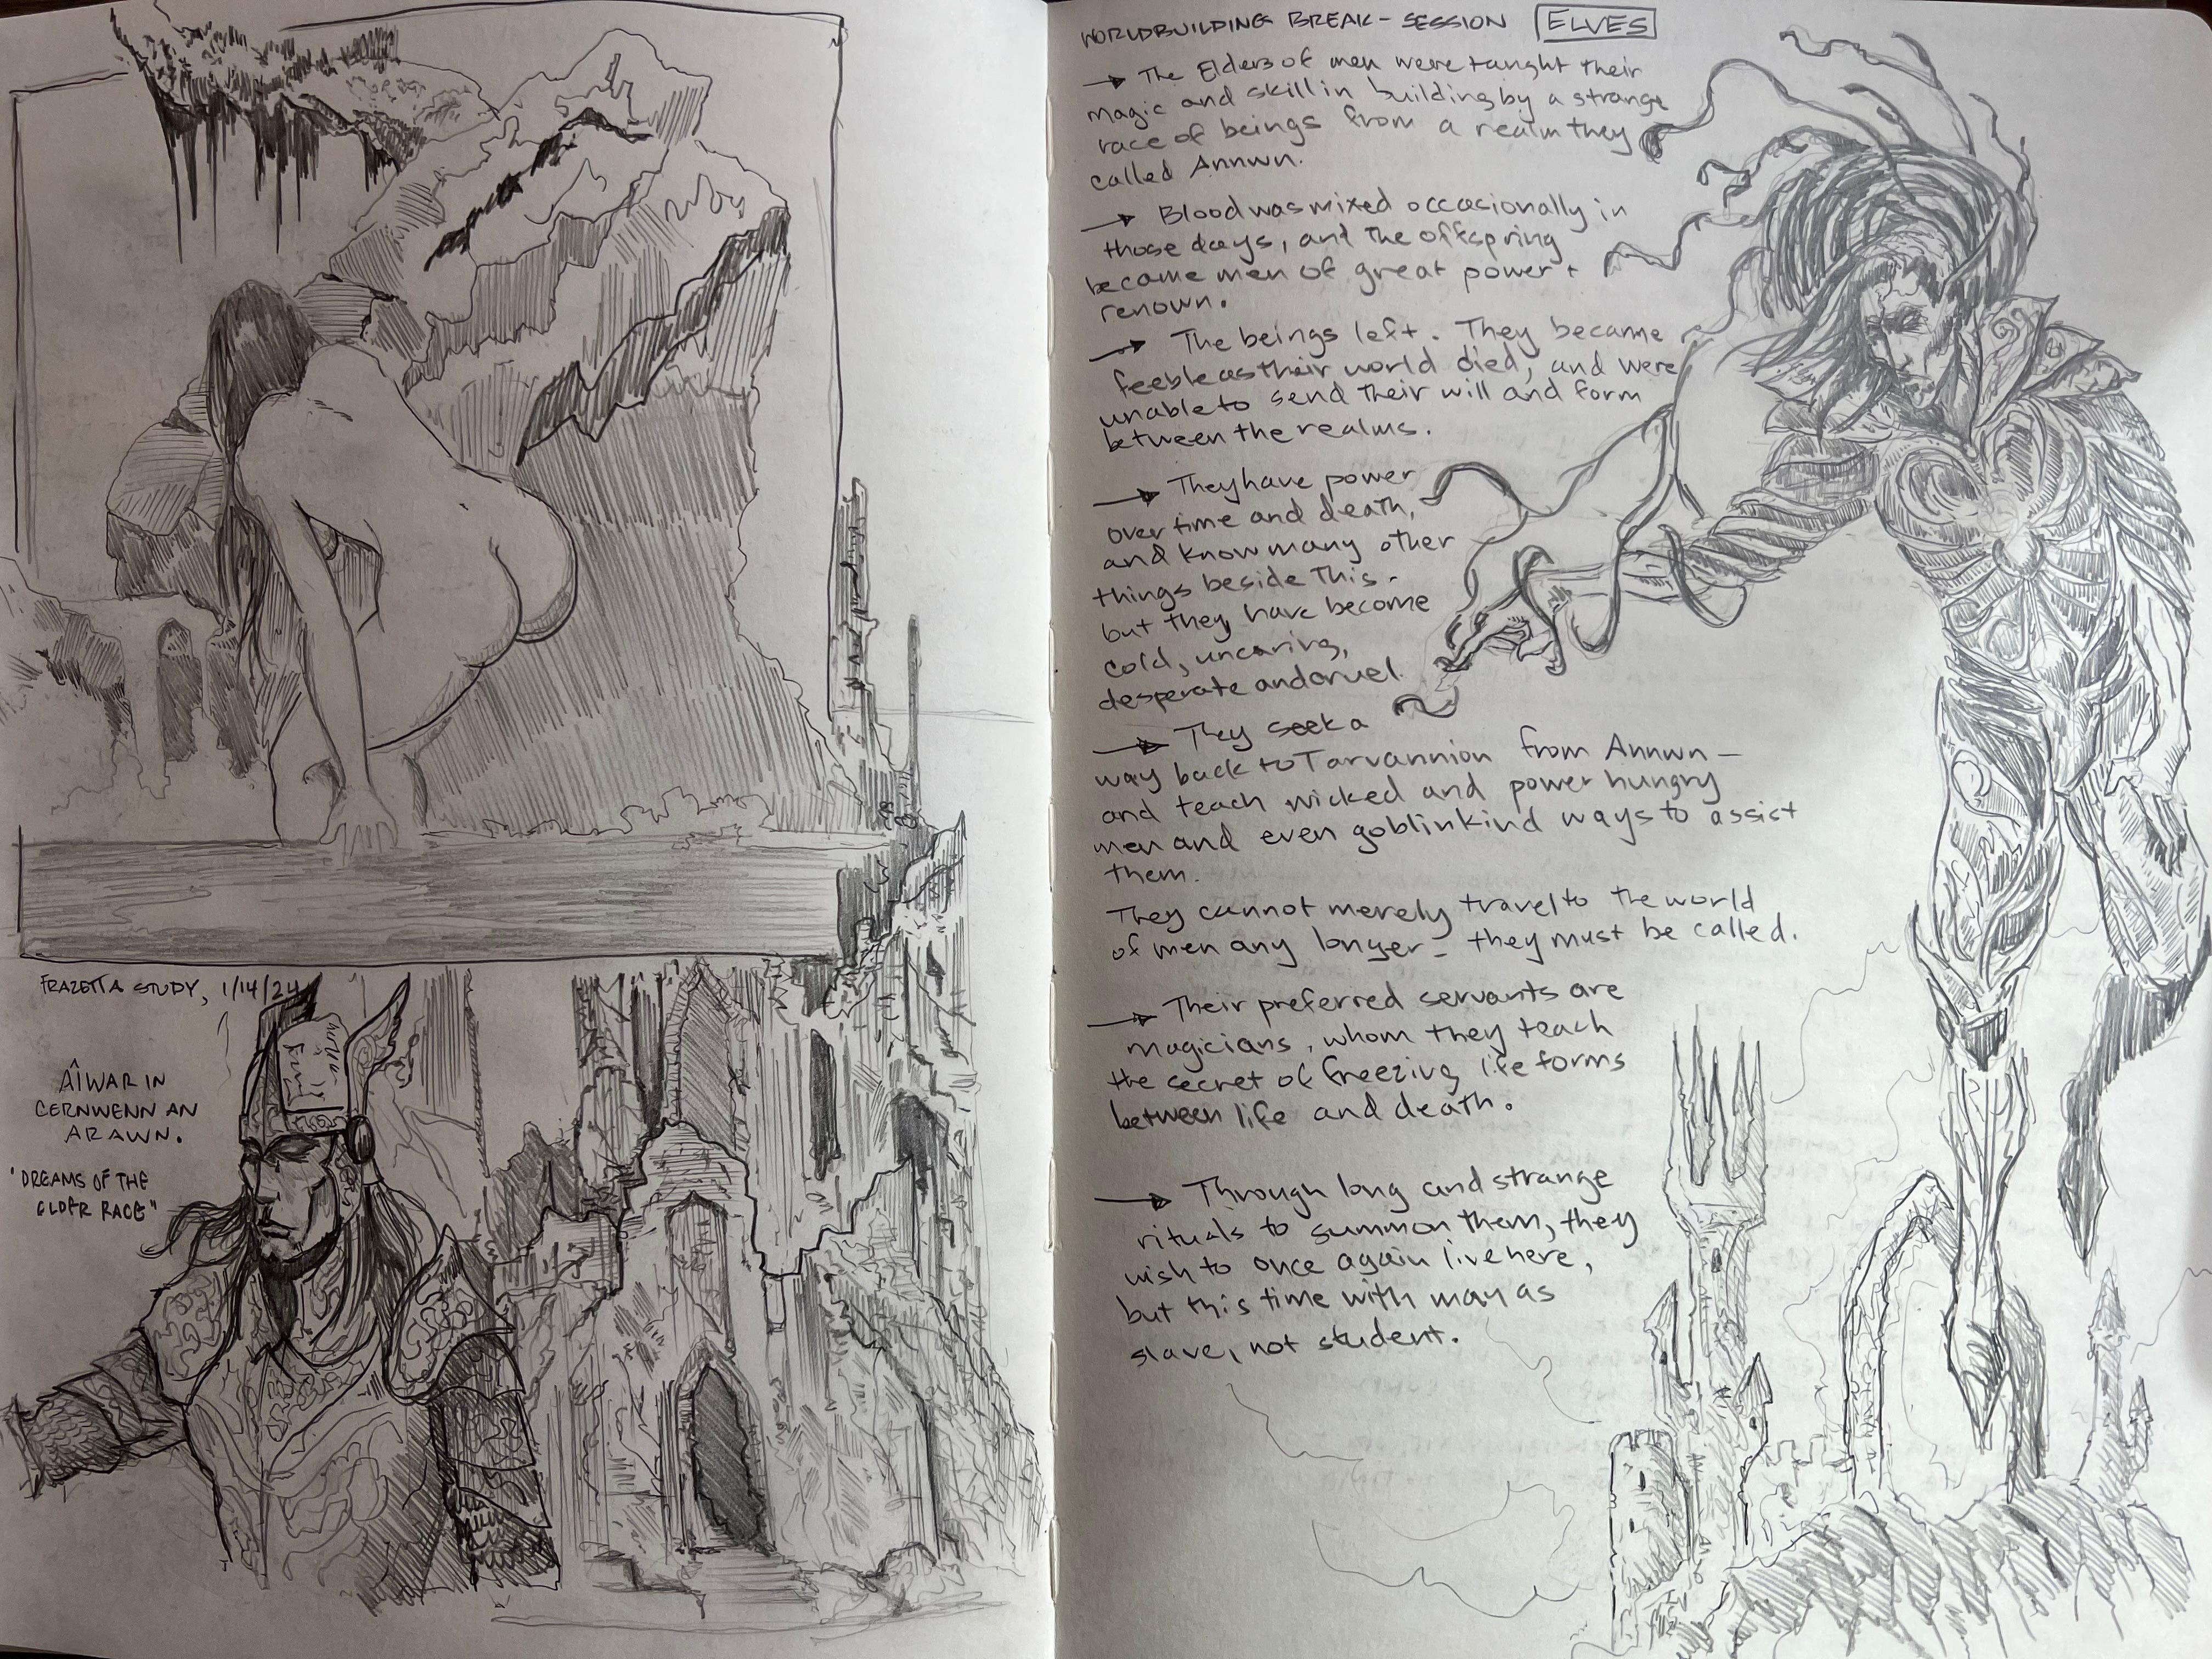 FRAZETTA STUDY, 1/14/24
ÂIWAR IN
CERNWENN AN
ARAWN.
"DREAMS OF THE
ELDER RACE"
WORLDBUILDING BREAK-SESSION ELVES
→ The Elders of men were taught their
magic and skill in building by a strange
race of beings from a realm they
called Annwn.
→ Blood was mixed occasionally in
those days, and the offspring
became men of great power +
renown.
→ The beings left. They became
feeble as their world died, and were
unable to send their will and form
between the realms.
→ They have power
over time and death,
and know many other
things beside this -
but they have become
cold, uncaring,
desperate and cruel.
→ They seek a
way back to Tarvannion from Annwn —
and teach wicked and power hungry
men and even goblinkind ways to assist
them.
They cannot merely travel to the world
of men any longer - they must be called.
→ Their preferred servants are
magicians, whom they teach
the secret of freezing life forms
between life and death.
→ Through long and strange
rituals to summon them, they
wish to once again live here,
but this time with man as
slave, not student.